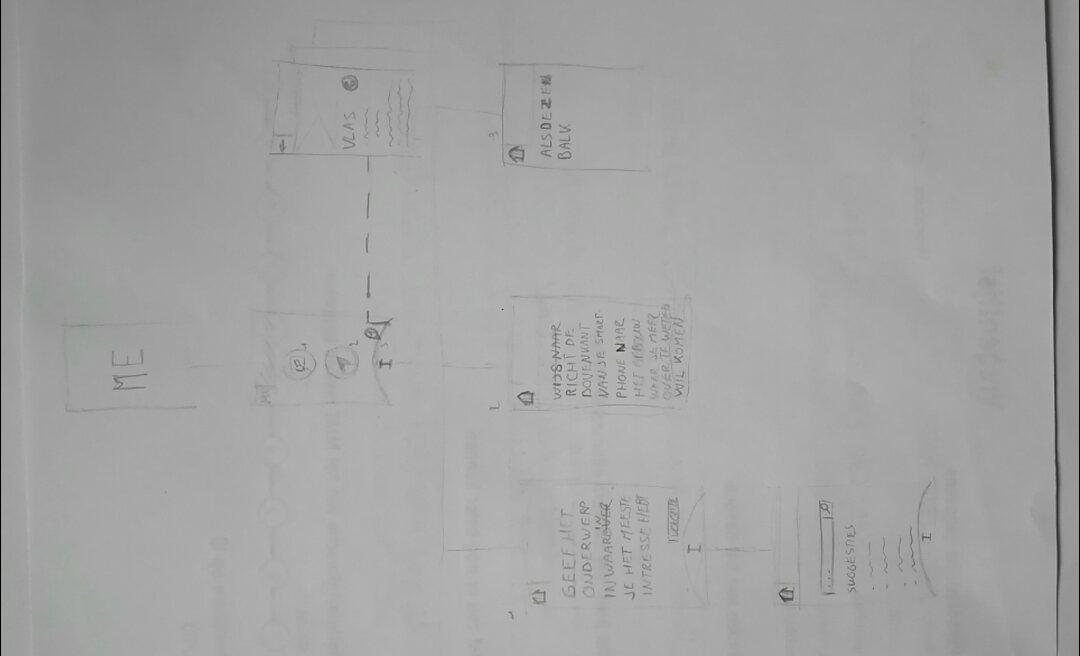 ME
ME
1
2
VLAS
I 3
1
2
3
GEEF HET
ONDERWERP
IN WAAROVER IN
JE HET MEESTE
INTRESSE HEBT
I
WIJS NAAR
RICHT DE
BOVENKANT
VAN JE SMART-
PHONE NAAR
HET GEBOUW
WAAR JE MEER
OVER TE WETEN
WIL KOMEN
ALS DEZE EEN
BALK
...
SUGGESTIES
I